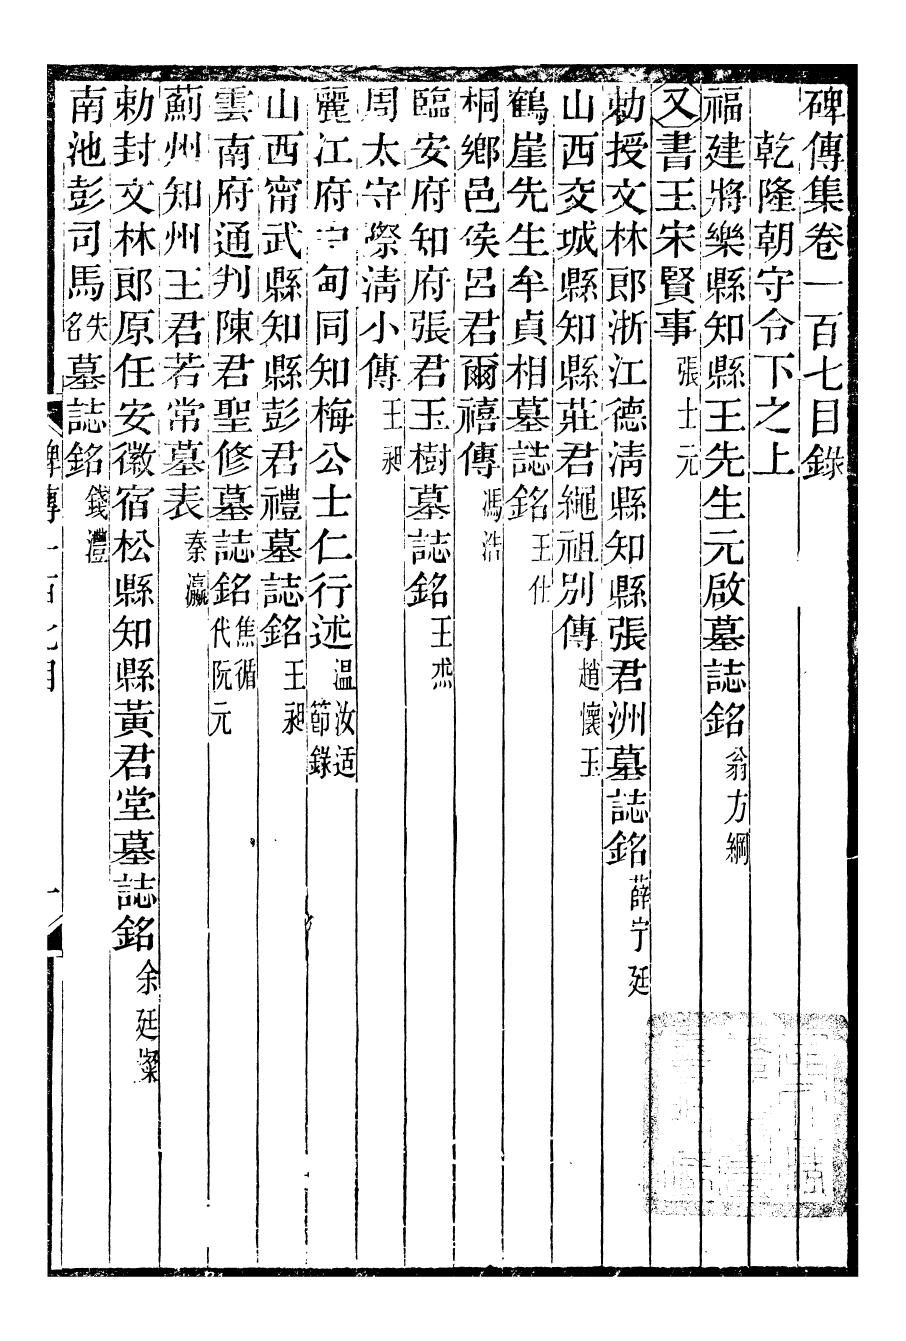 碑傳集卷一百七目錄
乾隆朝守令下之上
福建將樂縣知縣王先生元啟墓誌銘 翁方綱
又書王宋賢事 張士元
勅授文林郎浙江德清縣知縣張君洲墓誌銘 薛宁廷
山西交城縣知縣莊君繩祖別傳 趙懷玉
鶴崖先生牟貞相墓誌銘 王仕
桐鄉邑侯呂君爾禧傳 馮浩
臨安府知府張君玉樹墓誌銘 王杰
周太守際清小傳 王昶
麗江府中甸同知梅公士仁行述 温汝适節錄
山西甯武縣知縣彭君禮墓誌銘 王昶
雲南府通判陳君聖修墓誌銘 焦循代阮元
薊州知州王君若常墓表 秦瀛
勅封文林郎原任安徽宿松縣知縣黃君堂墓誌銘 余廷燦
南池彭司馬失名墓誌銘 錢灃
碑傳一百七目 一